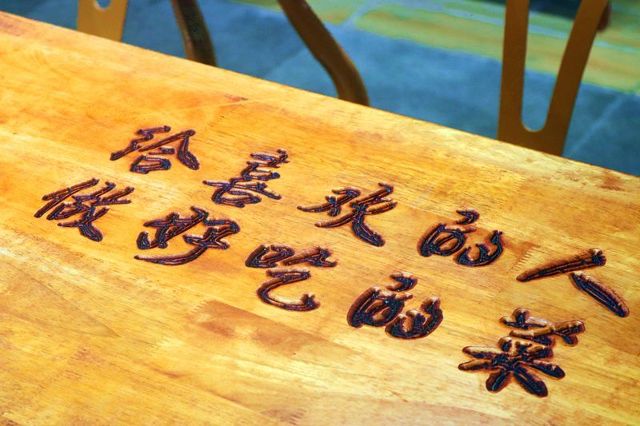 给喜欢的人
做好吃的菜